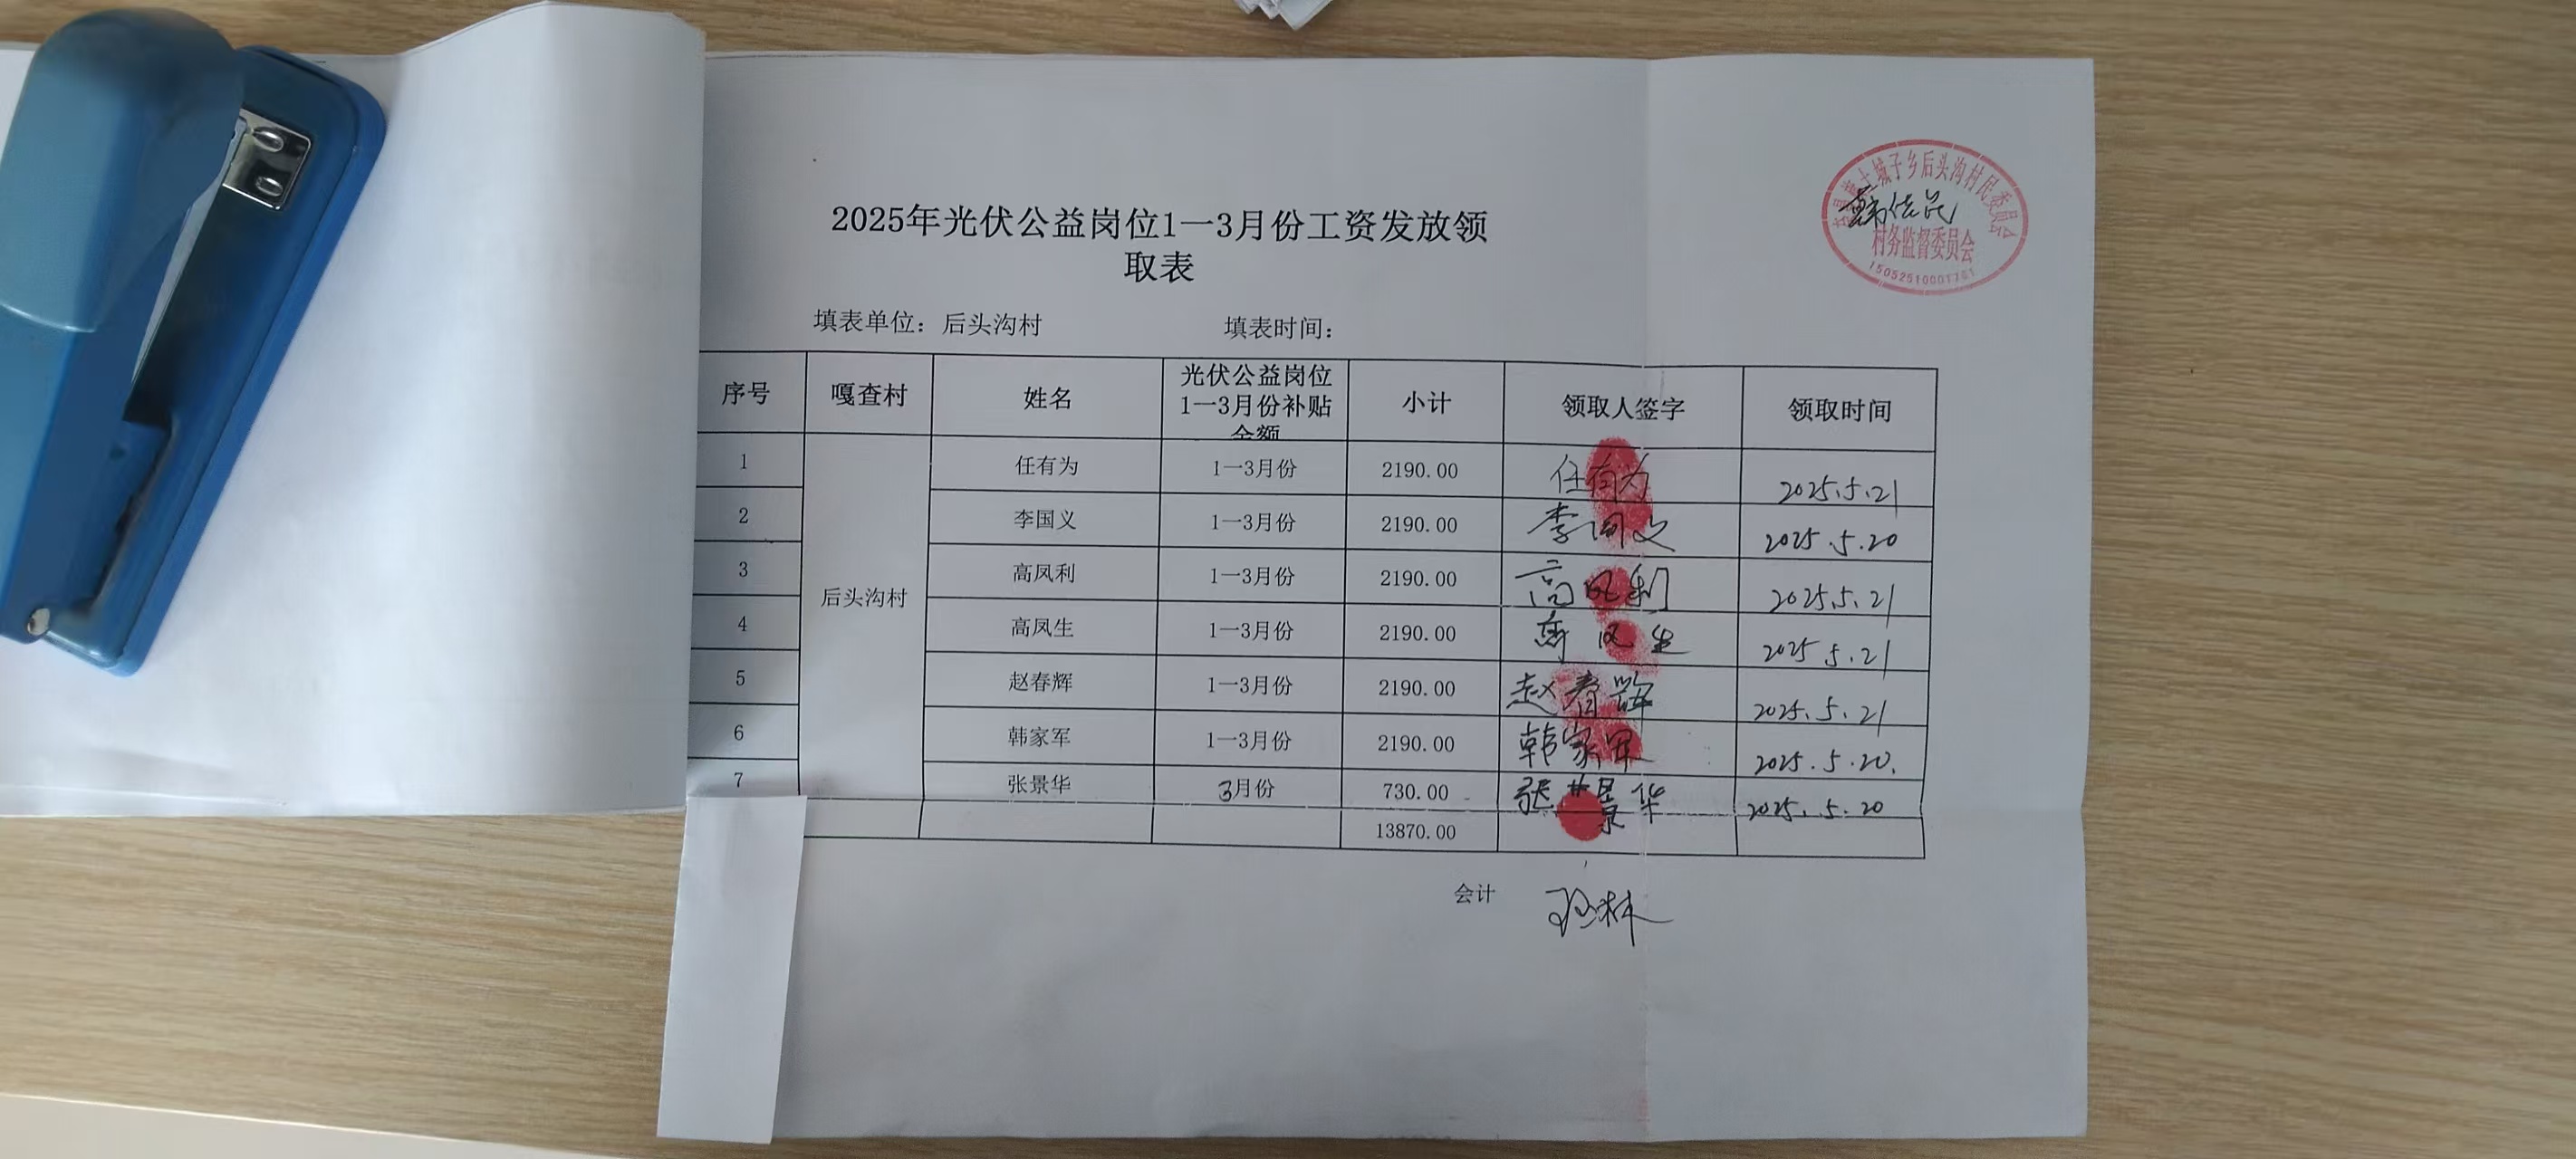 黄土城子乡后头沟村民委员会
村务监督委员会
2025年光伏公益岗位1一3月份工资发放领
取表
填表单位：后头沟村 填表时间：
序号 嘎查村 姓名 光伏公益岗位1一3月份补贴金额 小计 领取人签字 领取时间
1 任有为 1一3月份 2190.00 任有为 2025.5.21
2 李国义 1一3月份 2190.00 李国义 2025.5.20
3 高凤利 1一3月份 2190.00 高凤利 2025.5.21
后头沟村
4 高凤生 1一3月份 2190.00 高凤生 2025.5.21
5 赵春辉 1一3月份 2190.00 赵春辉 2025.5.21
6 韩家军 1一3月份 2190.00 韩家军 2025.5.20.
7 张景华 3月份 730.00 张景华 2025.5.20
13870.00
会计